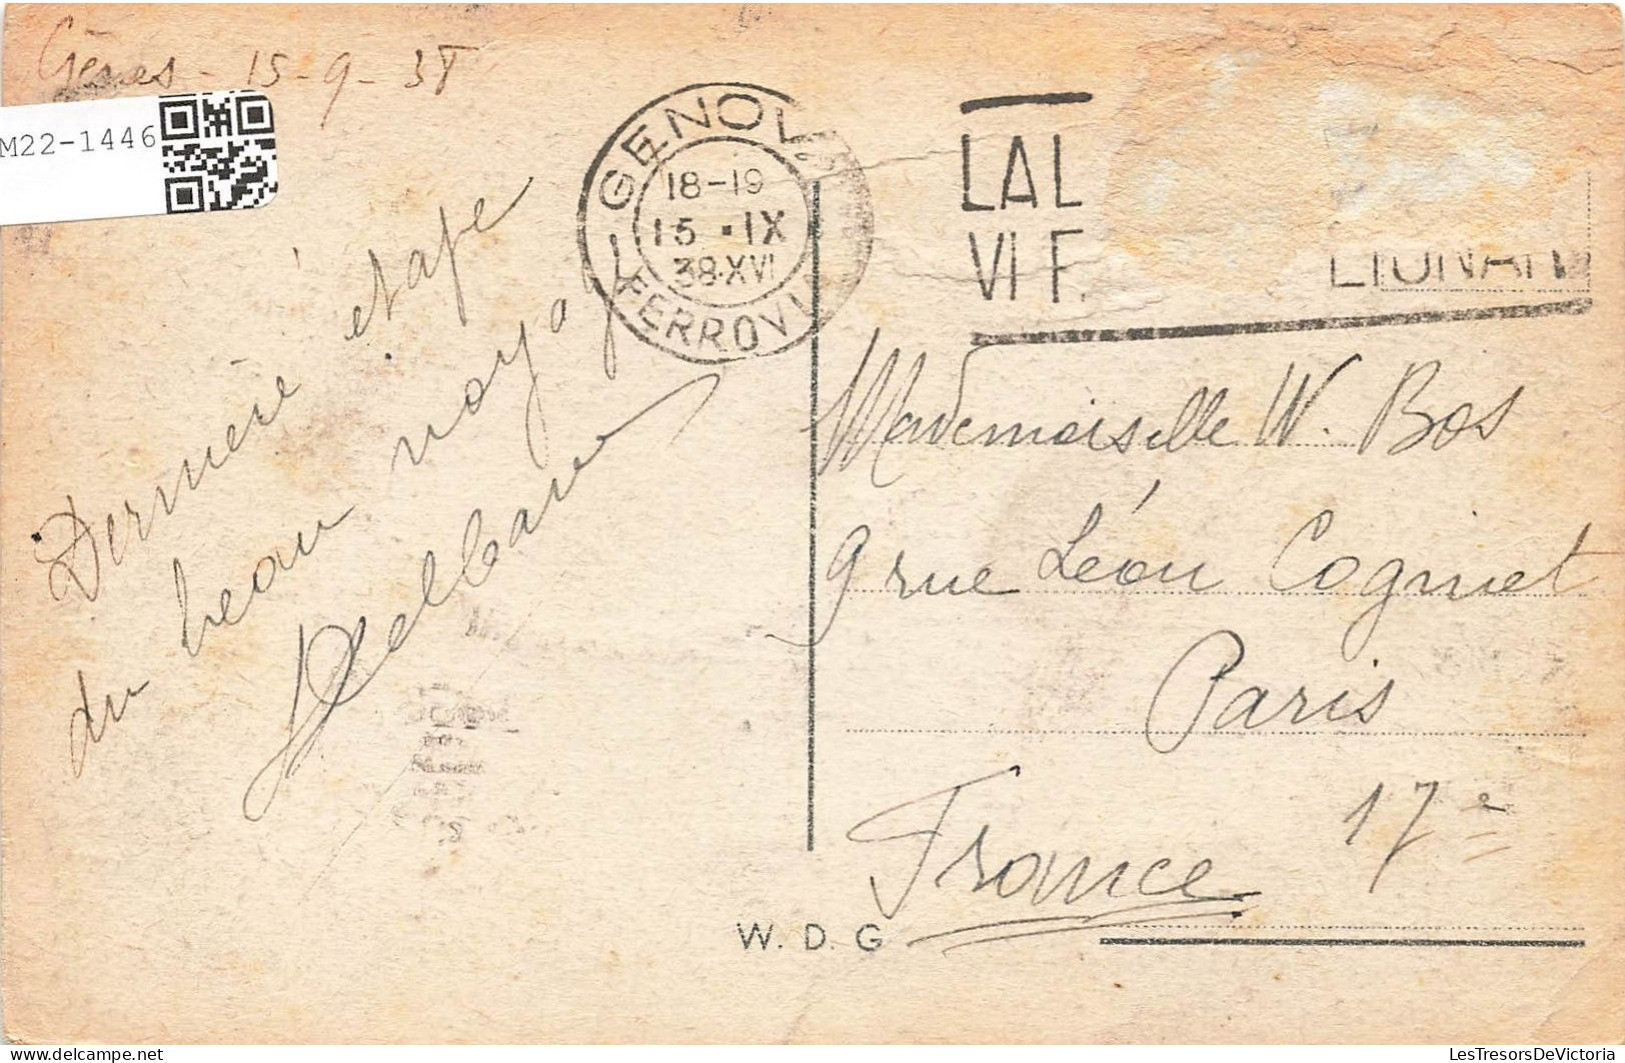 Gênes - 15-9-38
M22-1446
GENOVA
18-19
15 • IX
38·XVI
FERROVIA
LAL
VI F.
Dernière étape
du beau voyage
Mademoiselle W. Bos
9 rue Léon Cogniet
Paris
17e
France
W. D. G
www.delcampe.net
LesTresorsDeVictoria